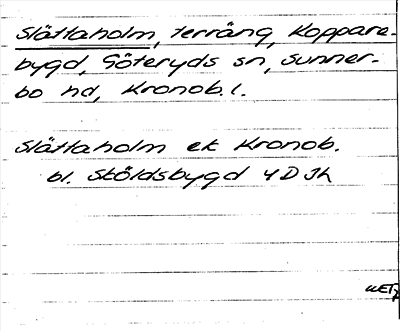 Slättaholm, terräng, Koppare-
bygd, Göteryds sn, Sunner-
bo hd, Kronob.l.
Slättaholm ek Kronob.
bl. Sköldsbygd 4D Jh